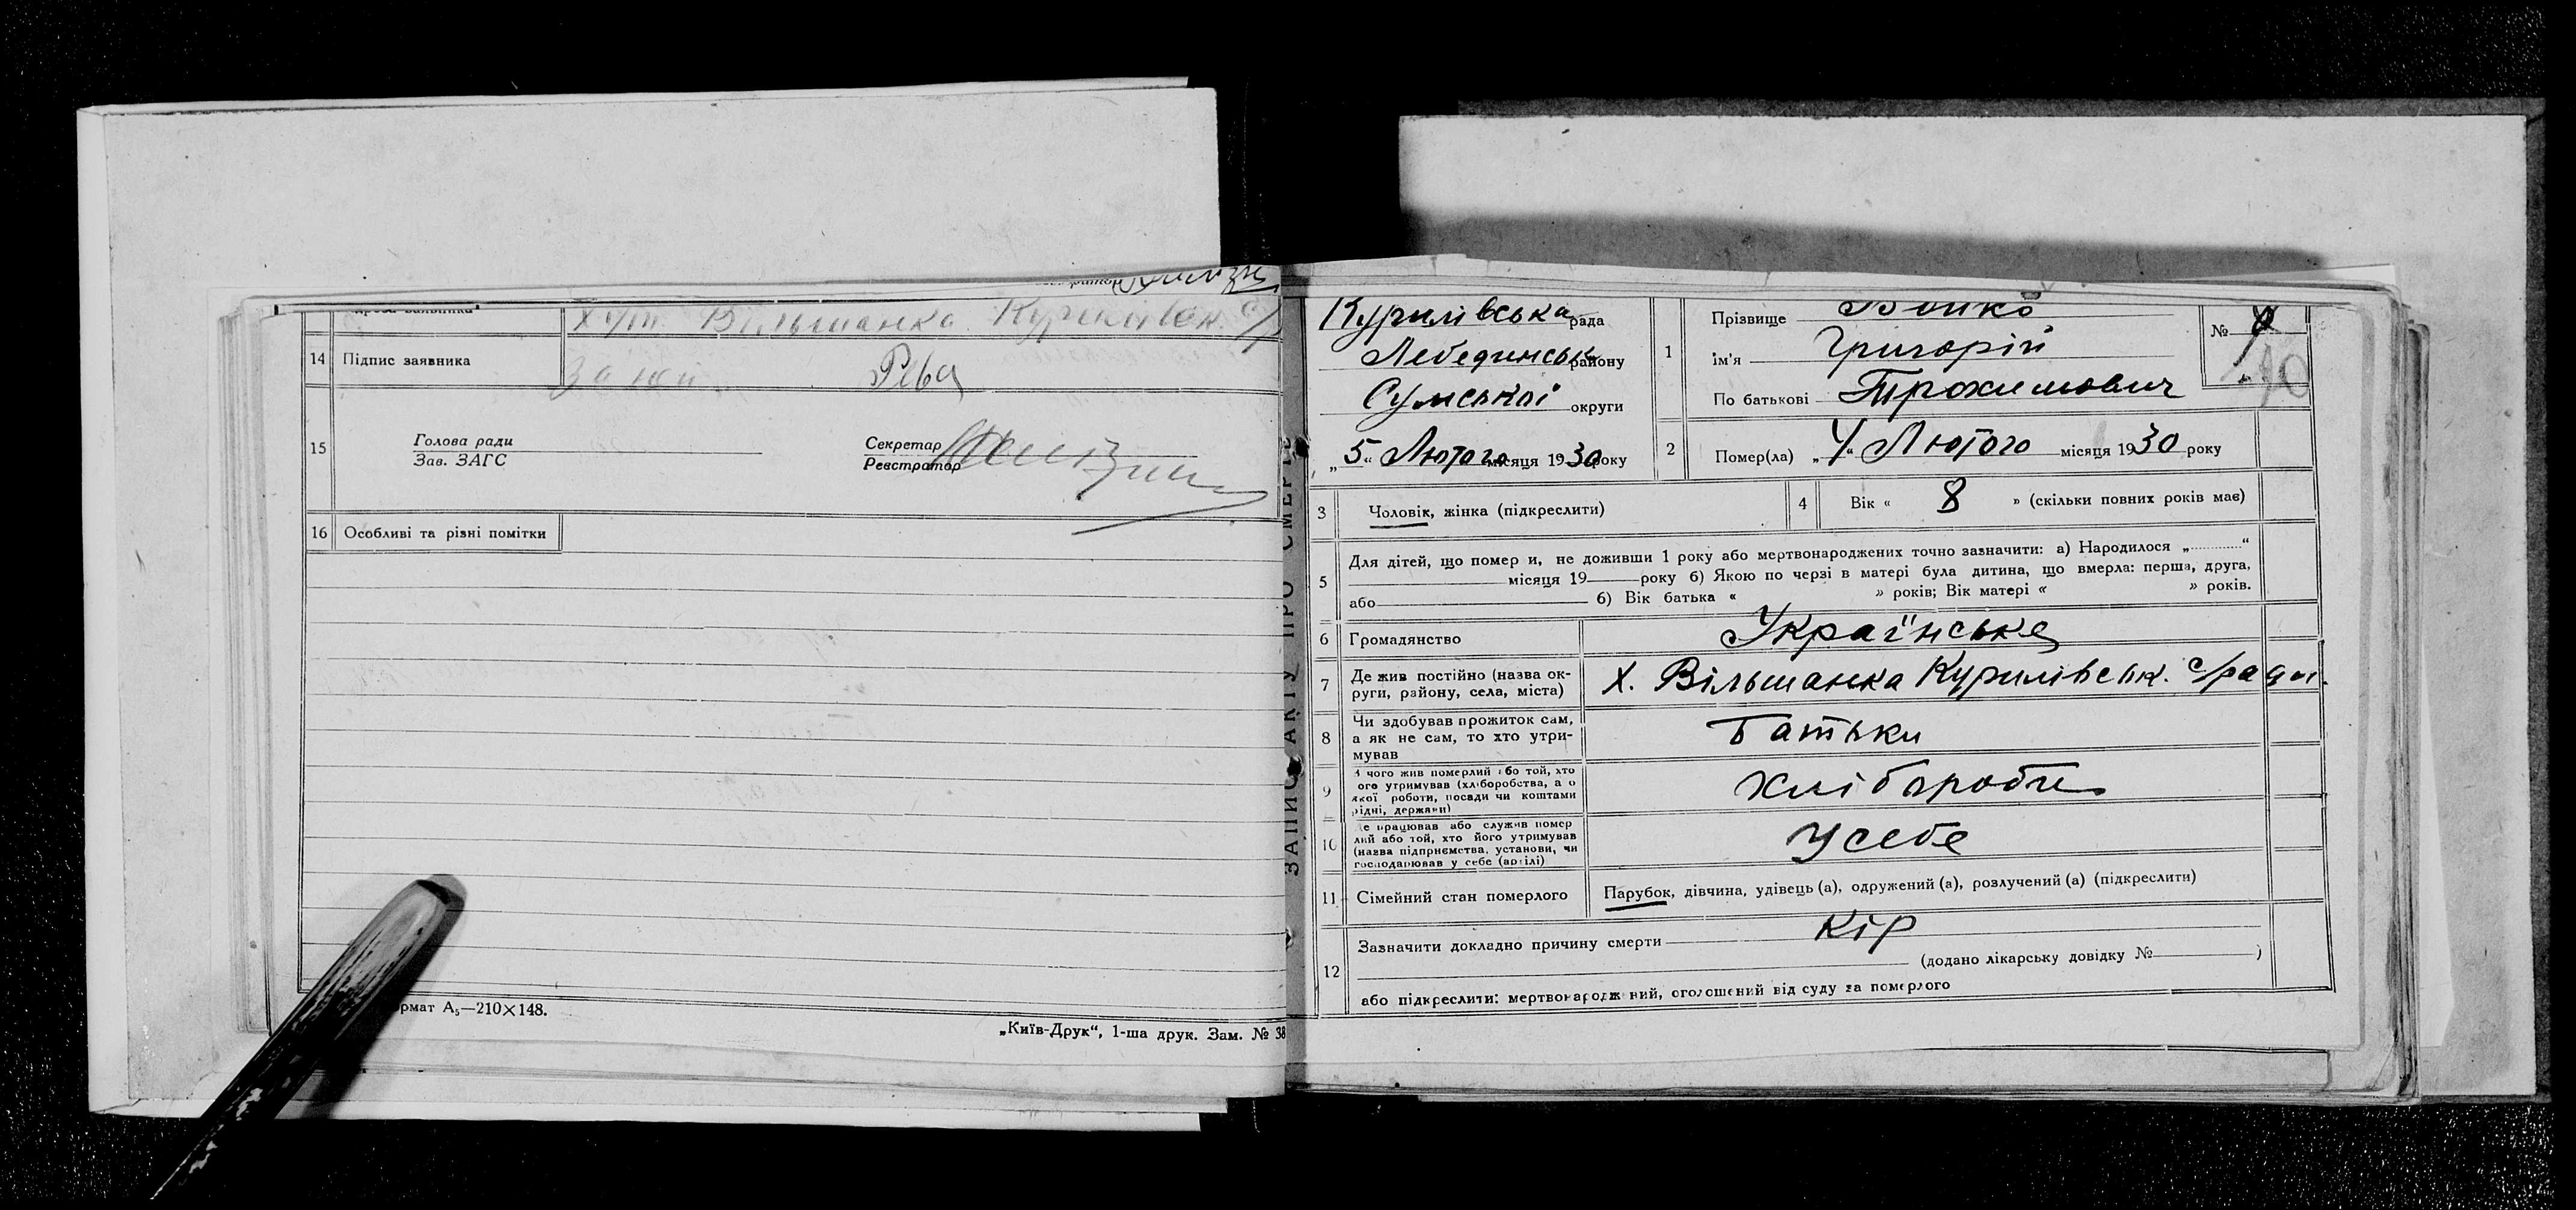 Хут. Вільшанка Курилівськ. с/
14 Підпис заявника За неп. Рева
15 Голова ради
Зав. ЗАГС
Секретар
Реєстратор
16 Особливі та різні помітки
формат А₅—210×148.
„Київ-Друк“, 1-ша друк. Зам. № 38
ЗАПИС АКТУ ПРО СМЕРТЬ
Курилівська рада
Лебединськ району
Сумської округи
„5“ Лютого місяця 1930 року
1 Прізвище Бойко
ім'я Григорій
По батькові Трохимович
№
2 Помер(ла) „4“ Лютого місяця 1930 року
3 Чоловік, жінка (підкреслити)
4 Вік « 8 » (скільки повних років має)
5 Для дітей, що помер и, не доживши 1 року або мертвонароджених точно зазначити: а) Народилося „ “
місяця 19 року б) Якою по черзі в матері була дитина, що вмерла: перша, друга,
або б) Вік батька « » років; Вік матері « » років.
6 Громадянство Українське
7 Де жив постійно (назва ок-
руги, району, села, міста) х. Вільшанка Курилівськ. с/ради.
8 Чи здобував прожиток сам,
а як не сам, то хто утри-
мував Батьки
9 З чого жив померлий або той, хто
ого утримував (хліборобства, а о
якої роботи, посади чи коштами
рідні, держави) хлібороби
10 е працював або служив помер
лий або той, хто його утримував
(назва підприємства, установи, чи
господарював у себе (артілі) У себе
11 Сімейний стан померлого Парубок, дівчина, удівець (а), одружений (а), розлучений (а) (підкреслити)
12 Зазначити докладно причину смерти Кір
(додано лікарську довідку № )
або підкреслити: мертвонароджений, оголошений від суду за померлого